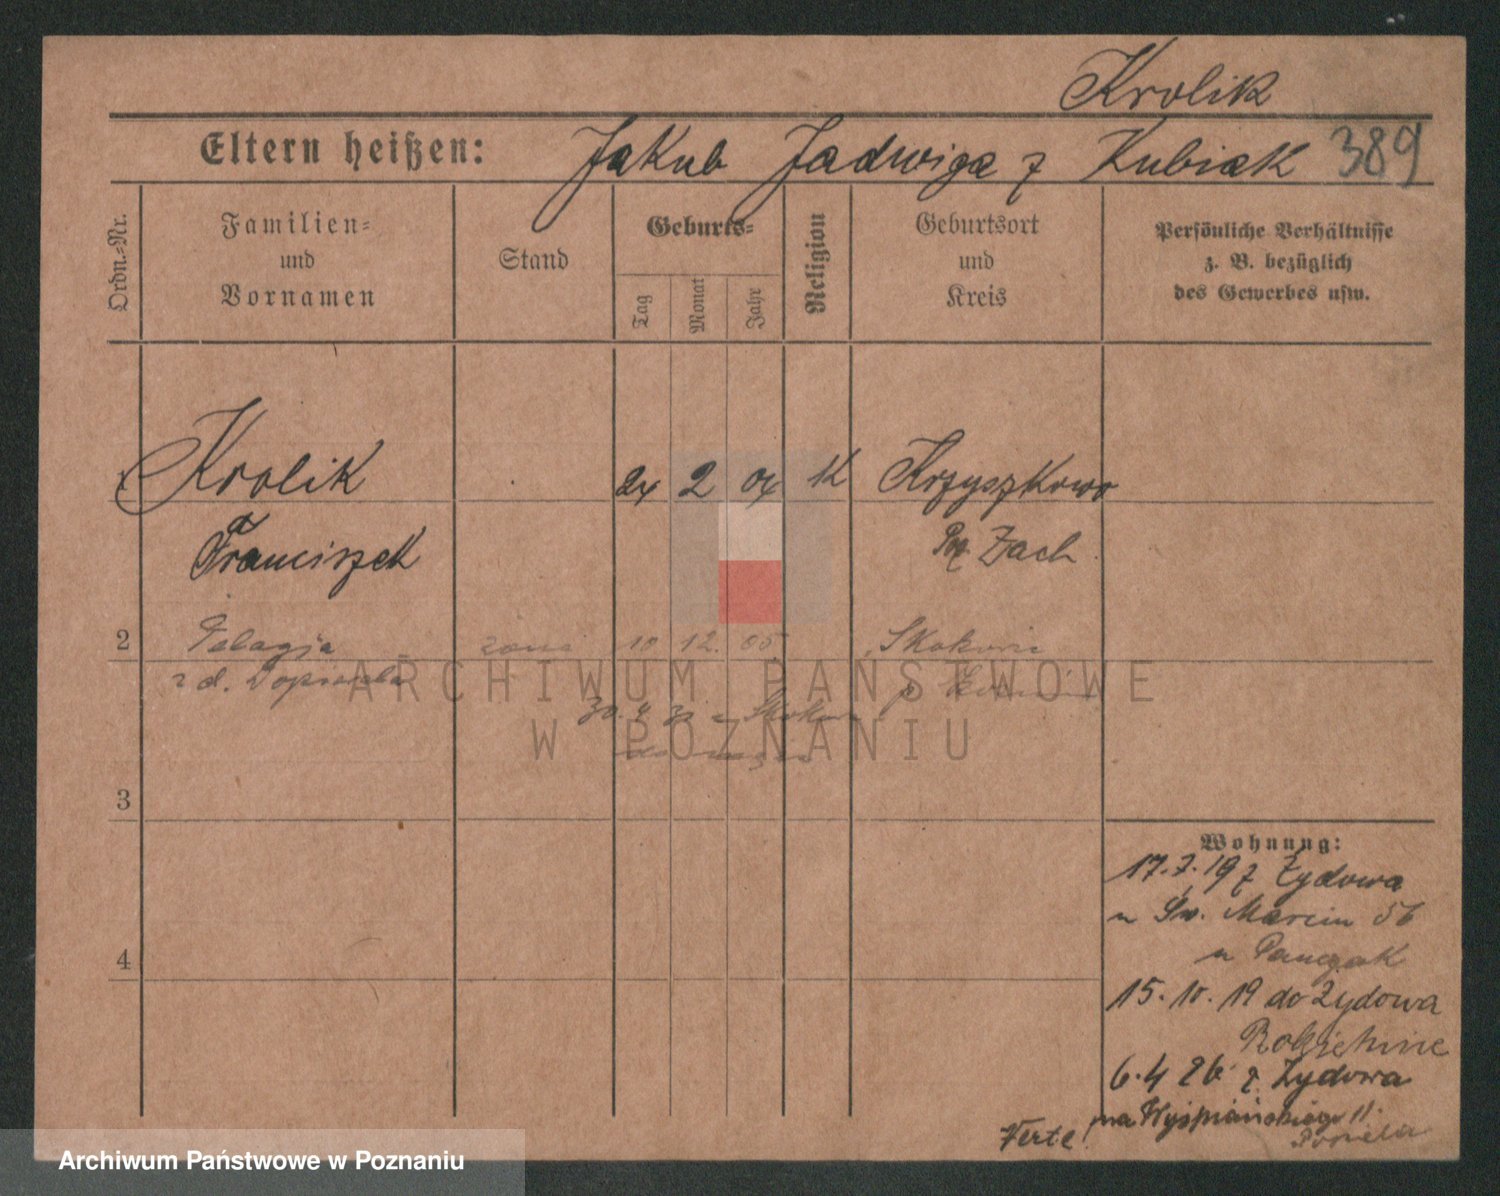 Krolik
Eltern heißen: Jakub Jadwiga z Kubiak 389
Ordn.=Nr.
Familien=
und
Vornamen
Stand
Geburts=
Tag
Monat
Jahr
Religion
Geburtsort
und
Kreis
Persönliche Verhältnisse
z. B. bezüglich
des Gewerbes usw.
1 Krolik 24 2 04 K Krzyszkowo
Franciszek Zach.
2 Pelagja żona 10 12. 05 Skokow
z d.
ARCHIWUM PAŃSTWOWE
W POZNANIU
3
4
Wohnung:
17.7.19 z Żydowa
u Św. Marcin 56
u
15.10.19 do Żydowa
Rokietnice
6.4 26 z Żydowa
na Wyspiańskiego 11.
Verte!
Archiwum Państwowe w Poznaniu